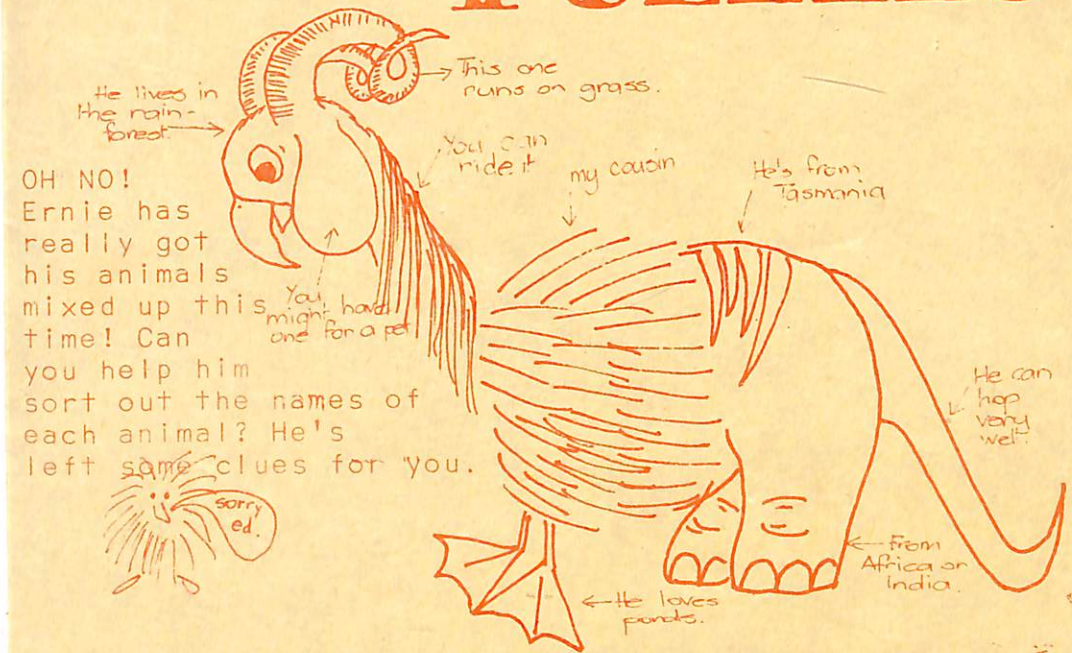 This one
runs on grass.
He lives in
the rain-
forest.
You can
ride it
my cousin
He's from
Tasmania
OH NO!
Ernie has
really got
his animals
mixed up this
time! Can
you help him
sort out the names of
each animal? He's
left some clues for you.
You
might have
one for a pet
He can
hop
very
well.
sorry
ed.
From
Africa or
India.
He loves
ponds.